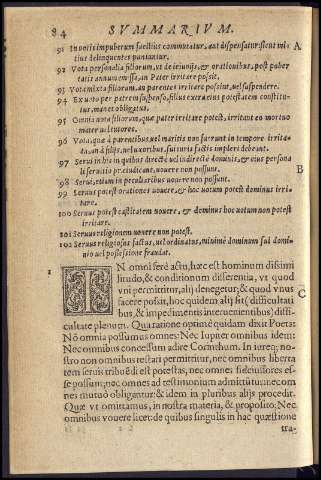 84 SVMMARIVM.
91 In votis impuberum facilius commutatur, aut dispensatur sicut mi-
tius delinquentes puniuntur.
92 Vota personalia filiorum, vt de ieiunijs, & orationibus, post puber
tatis annum emissa, an Pater irritare possit.
93 Vota mixta filiorum, an parentes irritare possint, vel suspendere.
94 Ex voto per patrem suspenso, filius extra eius potestatem constitu-
tus, manet obligatus.
95 Omnia vota filiorum, quæ pater irritare potest, irritant eo mortuo
mater, vel tutores.
96 Vota, quæ à parentibus, vel maritis non fuerunt in tempore irrita-
ta, an à filijs, vel vxoribus, sui iuris factis impleri debeant.
97 Serui in his in quibus directè vel indirectè dominis, & eius persona
li seruitio præiudicant, vouere non possunt.
98 Serui, etiam in peculiaribus vouere non possunt.
99 Seruus potest orationes vouere, & hoc votum potest dominus irri-
tare.
100 Seruus potest castitatem vouere, & dominus hoc votum non potest
irritare.
101 Seruus religionem vouere non potest.
102 Seruus religiosus factus, vel ordinatus, minimè dominum sui domi-
nio vel possessione fraudat.
B
1
IN omni ferè actu, hæc est hominum dissimi
litudo, & conditionum differentia, vt quod
vni permittitur, alij denegetur, & quod vnus
facere possit, hoc quidem alij sit (difficultati
bus, & impedimentis interuenientibus) diffi-
cultate plenum. Qua ratione optimè quidam dixit Poeta:
Nõ omnia possumus omnes: Nec Iupiter omnibus idem:
Nec omnibus concessum adire Corinthum. In iure q; no-
stro non omnibus testari permittitur, nec omnibus liberta
tem seruis tribuẽdi est potestas, nec omnes fideiussores es-
se possunt, nec omnes ad testimonium admittũtur: nec om
nes mutuò obligantur: & idem in pluribus alijs procedit.
Quæ vt omittamus, in nostra materia, & proposito: Nec
omnibus vouere licet: de quibus singulis in hac quæstione
tra-
C